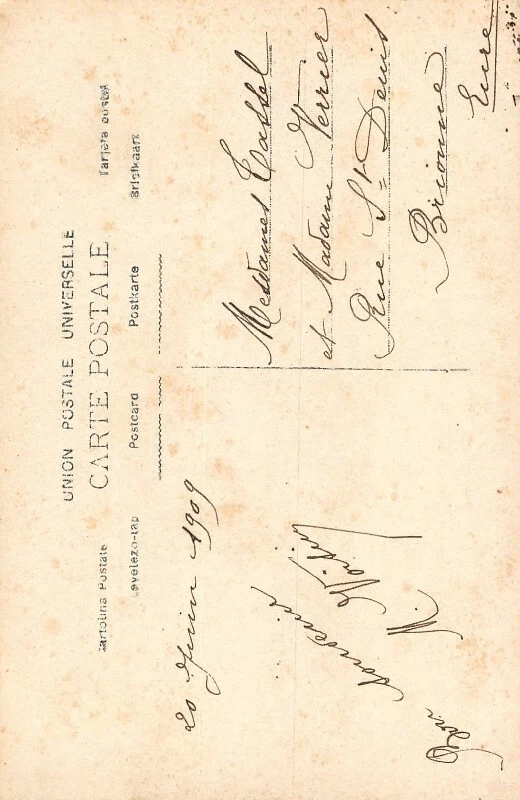 UNION POSTALE UNIVERSELLE
CARTE POSTALE
Cartolina Postale Tarjeta postal
Levelezo-Lap Postcard Postkarte Briefkaart
20 Juin 1909
souvenir
M.
Mesdames Cassel
et Madame Verrier
Rue St Denis
Brionne
Eure